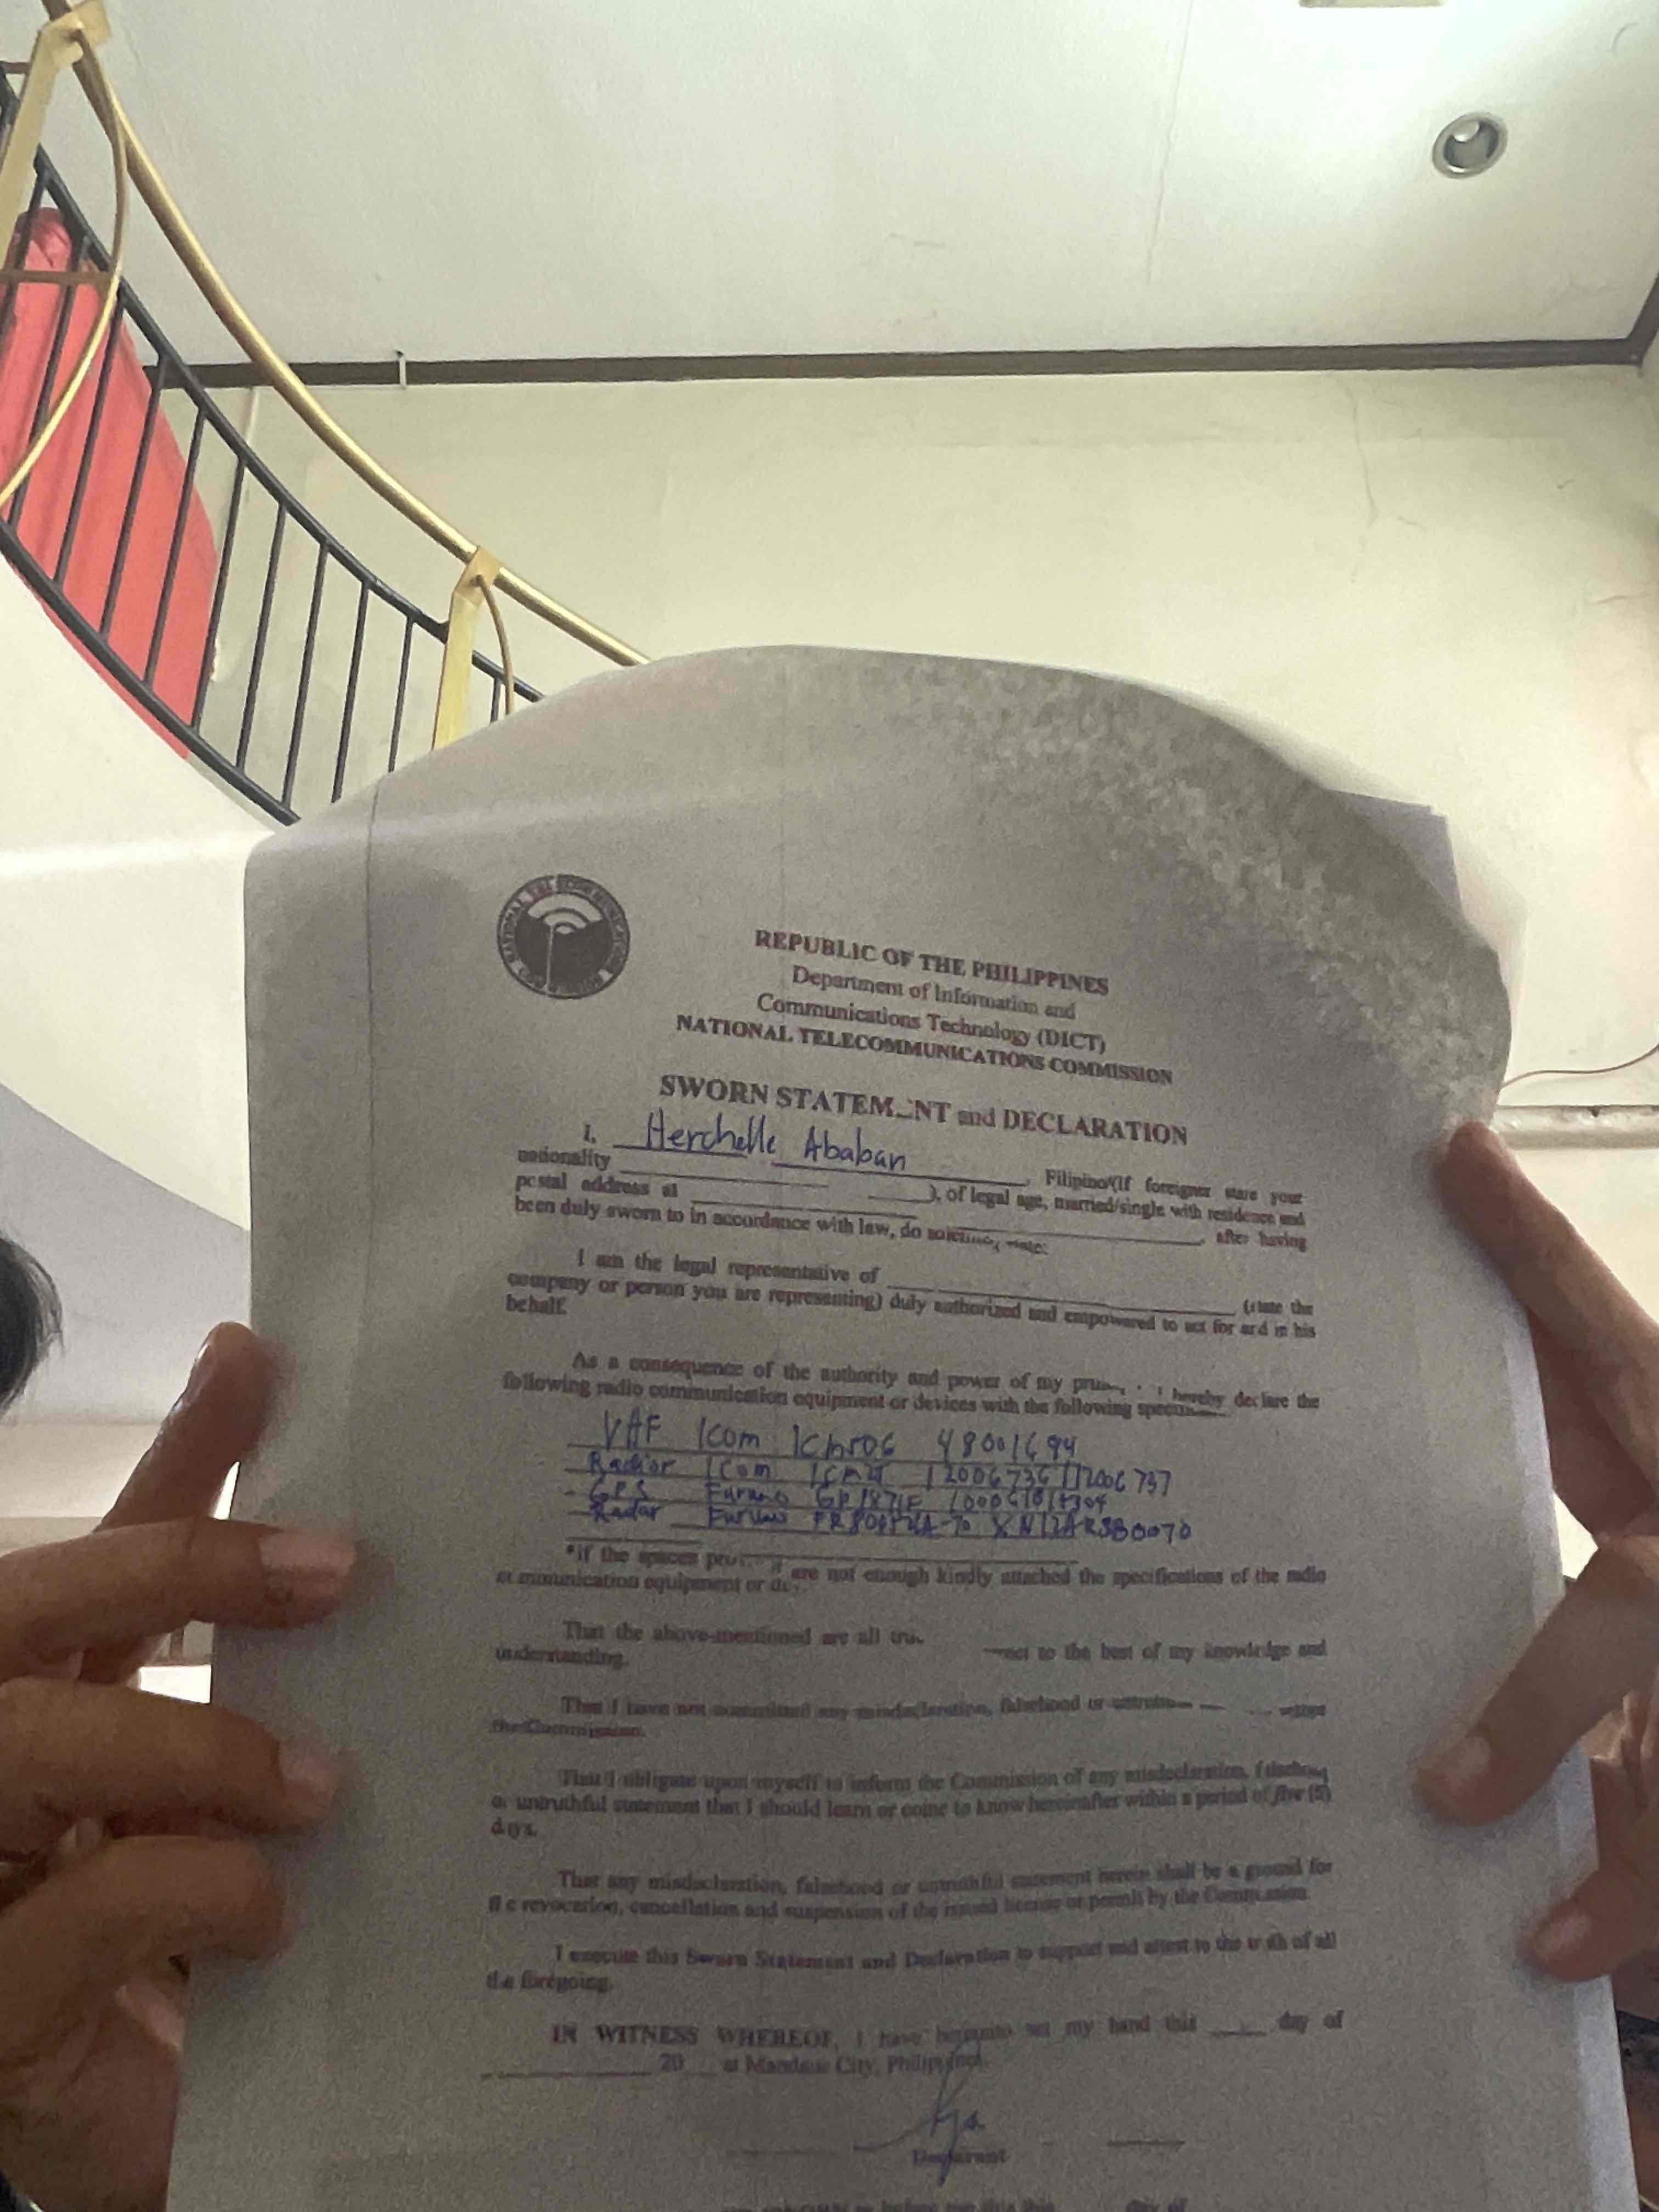 REPUBLIC OF THE PHILIPPINES
Department of Information and
Communications Technology (DICT)
NATIONAL TELECOMMUNICATIONS COMMISSION
SWORN STATEM NT and DECLARATION
I, Herchelle Ababan, Filipino (If foreigner state your
nationality ), of legal age, married/single with residence and
postal address at , after having
been duly sworn to in accordance with law, do
I am the legal representative of (state the
company or person you are representing) duly authorized and empowered to act for and in his
behalf.
As a consequence of the authority and power of my hereby declare the
following radio communication equipment or devices with the following
VHF Icom 48001694
Icom 12006737
GPS Furuno
Radar Furuno
*if the spaces are not enough kindly attached the specifications of the radio
communication equipment or
That the above-mentioned are all to the best of my knowledge and
understanding.
That I have not committed any misdeclaration, falsehood or
the Commission.
That I obligate upon myself to inform the Commission of any misdeclaration,
or untruthful statement that I should learn or come to know hereinafter within a period of five (5)
days.
That any misdeclaration, falsehood or untruthful statement herein shall be a ground for
the revocation, cancellation and suspension of the issued license or permit by the Commission.
I execute this Sworn Statement and Declaration to support and attest to the truth of all
the foregoing.
IN WITNESS WHEREOF, I have hereunto set my hand this ____ day of
____ 20__ at Mandaue City, Philippines.
day of